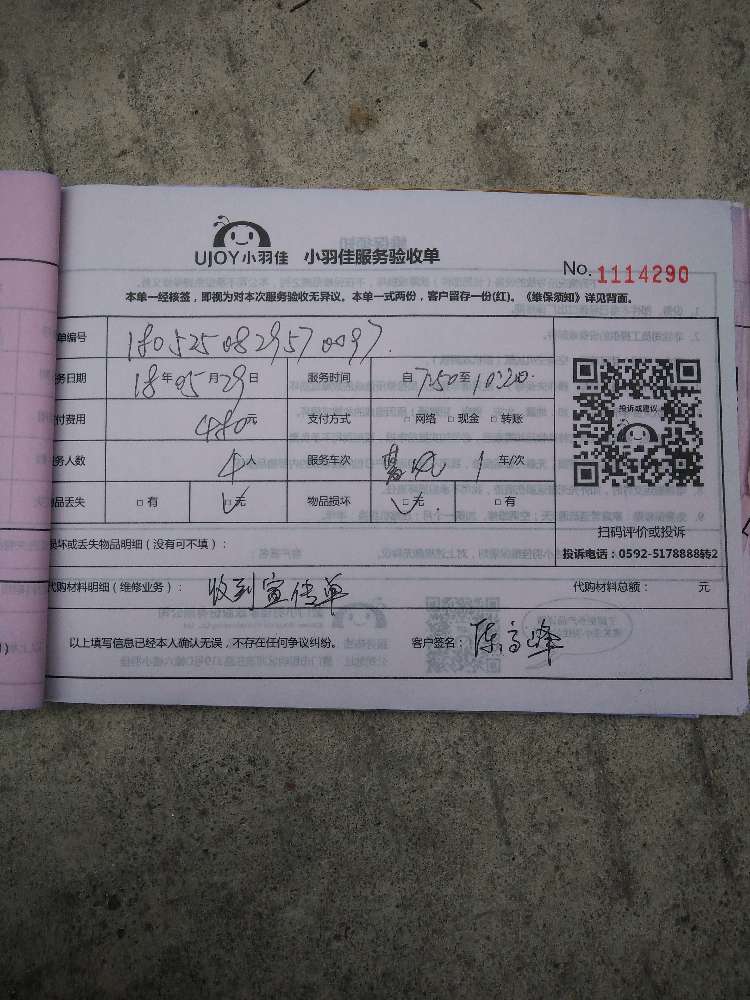 UJOY小羽佳 小羽佳服务验收单
No. 1114290
本单一经核签，即视为对本次服务验收无异议。本单一式两份，客户留存一份(红)。《维保须知》详见背面。
单编号 1805250829570097
务日期 18年05月29日 服务时间 自7:50至10:20
付费用 480元 支付方式 □网络 □现金 □转账
务人数 4人 服务车次 1 车/次
物品丢失 □有 □无 物品损坏 □无 □有
投诉或建议
扫码评价或投诉
投诉电话：0592-5178888转2
损坏或丢失物品明细（没有可不填）：
代购材料明细（维修业务）： 收到宣传单 代购材料总额： 元
以上填写信息已经本人确认无误，不存在任何争议纠纷。 客户签名： 陈高峰